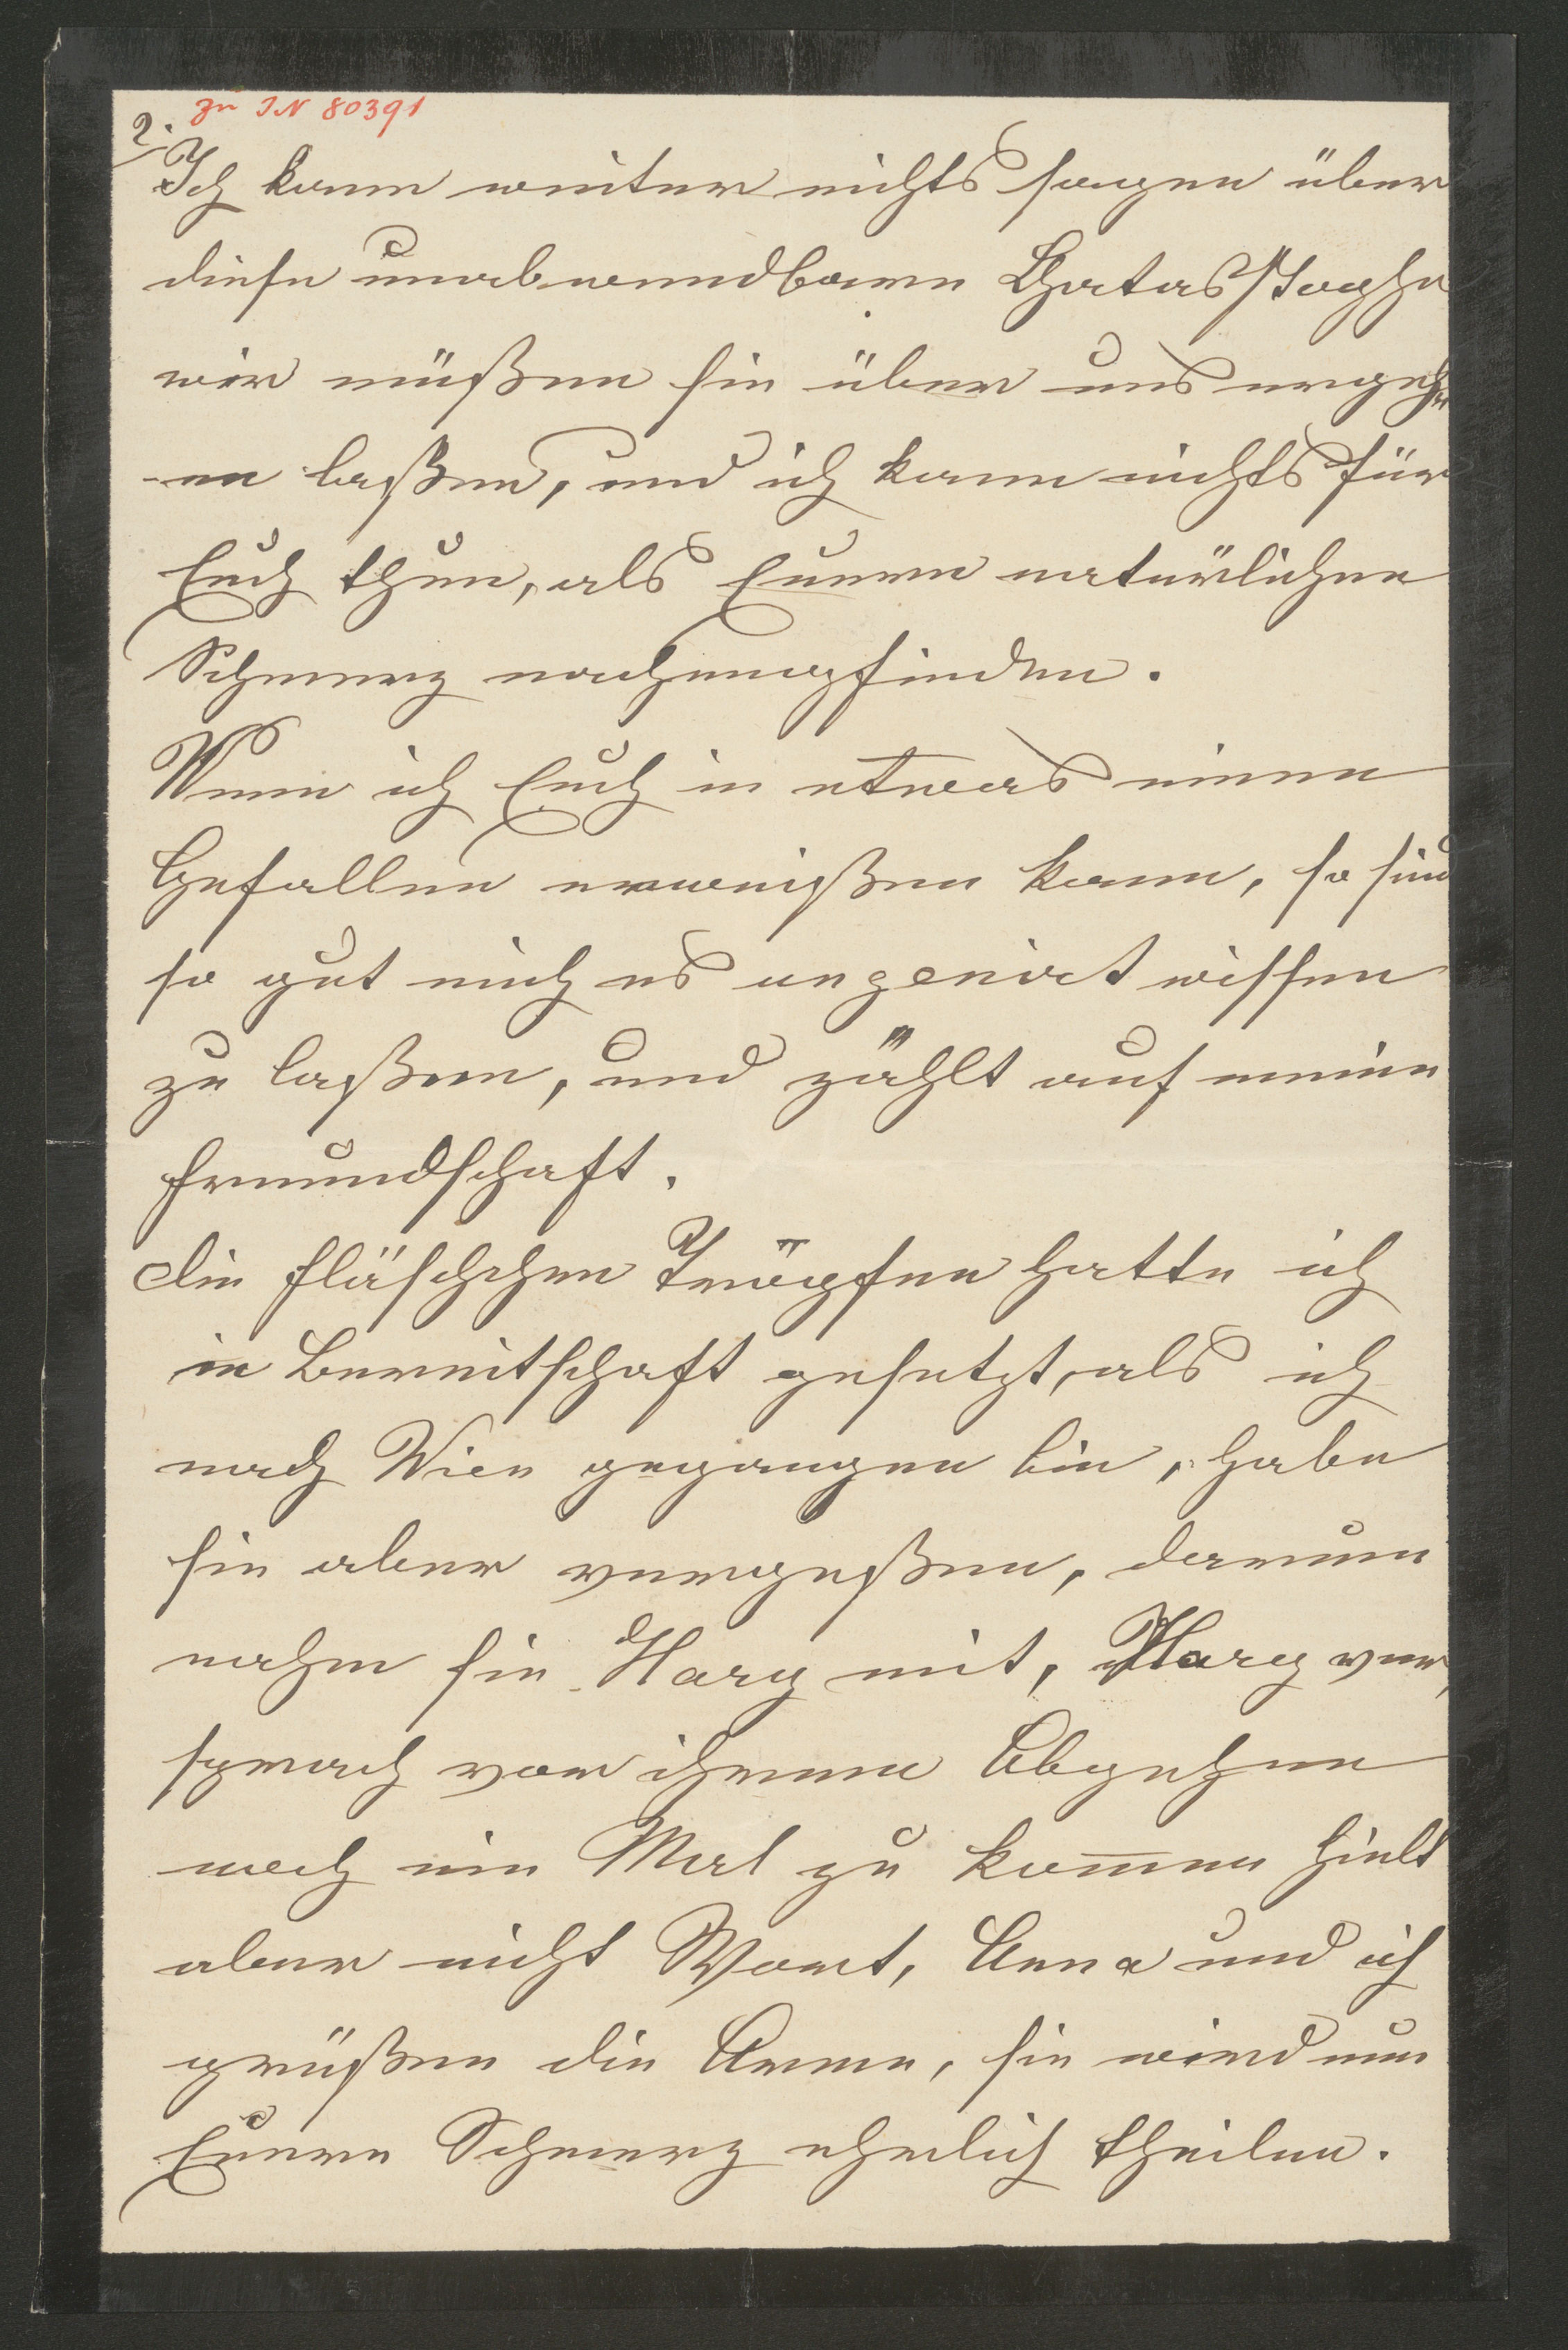 zu IN 80391
2.
Ich kann weiter nichts sagen über
diese unabwendbare Chatasstrophe
wir müßen sie über uns ergeh¬
en laßen, und ich kann nichts für
Euch thun, als Euern natürlichen
Schmerz nachempfinden.
Wenn ich Euch in etwas einen
Gefallen erweißen kann, so sind
so gut mich es ungenirt wissen
zu laßen, und zählt auf meine
Freundschaft.
die fläschchen Tröpfen hatte ich
in Bereitschaft gesetzt, als ich
nach Wien gegangen bin, habe
sie aber vergeßen, darum
nahm sie Mary mit, Mary ver„
sprach vor ihrem Abgehen
noch ein Mal zu kommen hielt
aber nicht Wort, Anna und ich
grüßen die Arme, sie wird nun
Euern Schmerz ehrlich theilen.